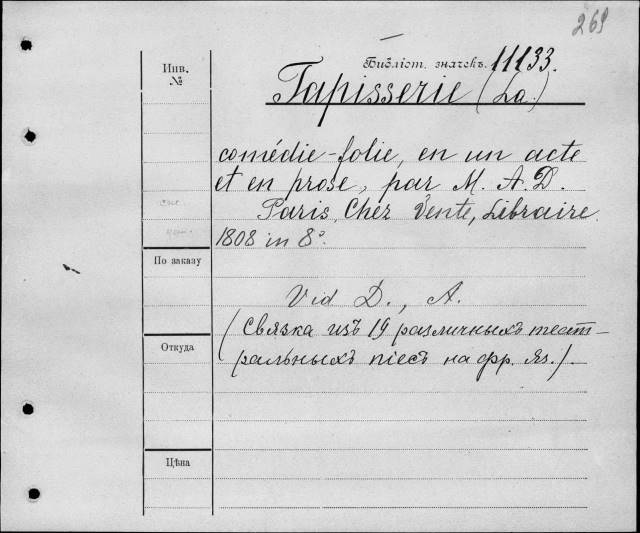 269
Библіот. значекъ. 11133.
Инв.
№
Tapisserie (La.)
comédie-folie, en un acte
et en prose, par M. A. D.
Paris, Chez Vente, Libraire.
1808 in 8º.
По заказу
Vid D., A.
(Связка изъ 19 различныхъ теат-
ральныхъ піесъ на фр. яз.).
Откуда
Цѣна